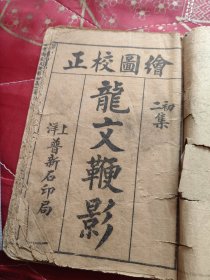 繪圖校正
初二集
龍文鞭影
上洋普新石印局